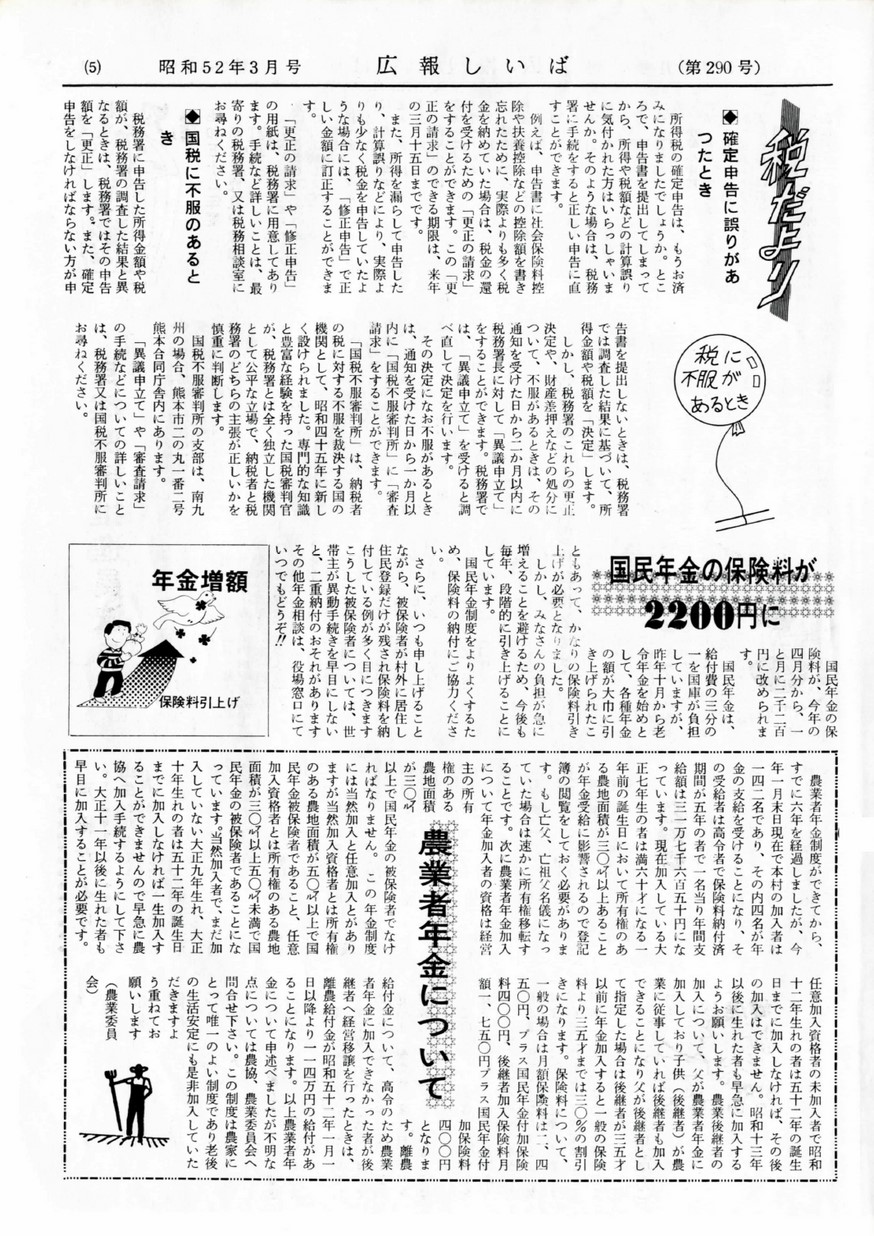 (5)　昭和52年3月号　広報しいば　(第290号)
税だより
◆確定申告に誤りがあ
つたとき
所得税の確定申告は、もうお済
みになりましたでしょうか。とこ
ろで、申告書を提出してしまって
から、所得や税額などの計算誤り
に気付かれた方はいらっしゃいま
せんか。そのような場合は、税務
署に手続をすると正しい申告に直
すことができます。
例えば、申告書に社会保険料控
除や扶養控除などの控除額を書き
忘れたために、実際よりも多く税
金を納めていた場合は、税金の還
付を受けるための「更正の請求」
をすることができます。この「更
正の請求」のできる期限は、来年
の三月十五日までです。
また、所得を漏らして申告した
り、計算誤りなどにより、実際よ
りも少なく税金を申告していたよ
うな場合には、「修正申告」で正
しい金額に訂正することができま
す。
「更正の請求」や「修正申告」
の用紙は、税務署に用意してあり
ます。手続など詳しいことは、最
寄りの税務署、又は税務相談室に
お尋ねください。
◆国税に不服のあると
き
税務署に申告した所得金額や税
額が、税務署の調査した結果と異
なるときは、税務署ではその申告
額を「更正」します。また、確定
申告をしなければならない方が申
告書を提出しないときは、税務署
では調査した結果に基づいて、所
得金額や税額を「決定」します。
しかし、税務署のこれらの更正
決定や、財産差押えなどの処分に
ついて、不服があるときは、その
通知を受けた日から二か月以内に
税務署長に対して「異議申立て」
をすることができます。税務署で
は、「異議申立て」を受けると調
べ直して決定を行います。
その決定になお不服があるとき
は、通知を受けた日から一か月以
内に「国税不服審判所」に「審査
請求」をすることができます。
「国税不服審判所」は、納税者
の税に対する不服を裁決する国の
機関として、昭和四十五年に新し
く設けられました。専門的な知識
と豊富な経験を持った国税審判官
が、税務署とは全く独立した機関
として公平な立場で、納税者と税
務署のどちらの主張が正しいかを
慎重に判断します。
国税不服審判所の支部は、南九
州の場合、熊本市二の丸一番二号
熊本合同庁舎内にあります。
「異議申立て」や「審査請求」
の手続などについての詳しいこと
は、税務署又は国税不服審判所に
お尋ねください。
税に
不服が
あるとき
国民年金の保険料が
2200円に
国民年金の保
険料が、今年の
四月分から、一
と月に二千二百
円に改められま
す。
国民年金は、
給付費の三分の
一を国庫が負担
していますが、
昨年十月から老
令年金を始めと
して、各種年金
の額が大巾に引
き上げられたこ
ともあって、かなりの保険料引き
上げが必要となりました。
しかし、みなさんの負担が急に
増えることを避けるため、今後も
毎年、段階的に引き上げることに
しています。
国民年金制度をよりよくするた
め、保険料の納付にご協力くださ
い。
さらに、いつも申し上げること
ながら、被保険者が村外に居住し
住民登録だけが残され保険料を納
付している例が多く目につきます
こうした被保険者については、世
帯主が異動手続きを早目にしない
と、二重納付のおそれがあります
その他年金相談は、役場窓口にて
いつでもどうぞ!!
年金増額
保険料引上げ
農業者年金について
農業者年金制度ができてから、
すでに六年を経過しましたが、今
年一月末日現在で本村の加入者は
一四二名であり、その内四名が年
金の支給を受けることになり、そ
の受給者は高令者で保険料納付済
期間が五年の者で一名当り年間支
給額は三一万七千六百五十円にな
っています。現在加入している大
正七年生の者は満六十才になる一
年前の誕生日において所有権のあ
る農地面積が三〇㌃以上あること
が年金受給に影響されるので登記
簿の閲覧をしておく必要がありま
す。もし亡父、亡祖父名儀になっ
ていた場合は速かに所有権移転す
ることです。次に農業者年金加入
について年金加入者の資格は経営
主の所有
権のある
農地面積
が三〇㌃
以上で国民年金の被保険者でなけ
ればなりません。この年金制度
には当然加入と任意加入とがあり
ますが当然加入資格者とは所有権
のある農地面積が五〇㌃以上で国
民年金被保険者であること、任意
加入資格者とは所有権のある農地
面積が三〇㌃以上五〇㌃未満で国
民年金の被保険者であることにな
っています。当然加入者で、まだ加
入していない大正九年生れ、大正
十年生れの者は五十二年の誕生日
までに加入しなければ一生加入す
ることができませんので早急に農
協へ加入手続するようにして下さ
い。大正十一年以後に生れた者も
早目に加入することが必要です。
任意加入資格者の未加入者で昭和
十二年生れの者は五十二年の誕生
日までに加入しなければ、その後
の加入はできません。昭和十三年
以後に生れた者も早急に加入する
ようお願いします。農業後継者の
加入について、父が農業者年金に
加入しており子供（後継者）が農
業に従事していれば後継者も加入
できることになり父が後継者とし
て指定した場合は後継者が三五才
以前に年金加入すると一般の保険
料より三五才までは三〇%の割引
きになります。保険料について、
一般の場合は月額保険料は二、四
五〇円、プラス国民年金付加保険
料四〇〇円、後継者加入保険料月
額一、七五〇円プラス国民年金付
加保険料
四〇〇円
となりま
す。離農
給付金について、高令のため農業
者年金に加入できなかった者が後
継者へ経営移譲を行ったときは、
離農給付金が昭和五十二年一月一
日以降より一一四万円の給付があ
ることになります。以上農業者年
金について申述べましたが不明な
点については農協、農業委員会へ
問合せ下さい。この制度は農家に
とって唯一のよい制度であり老後
の生活安定にも是非加入していた
だきますよ
う重ねてお
願いします
（農業委員
会）